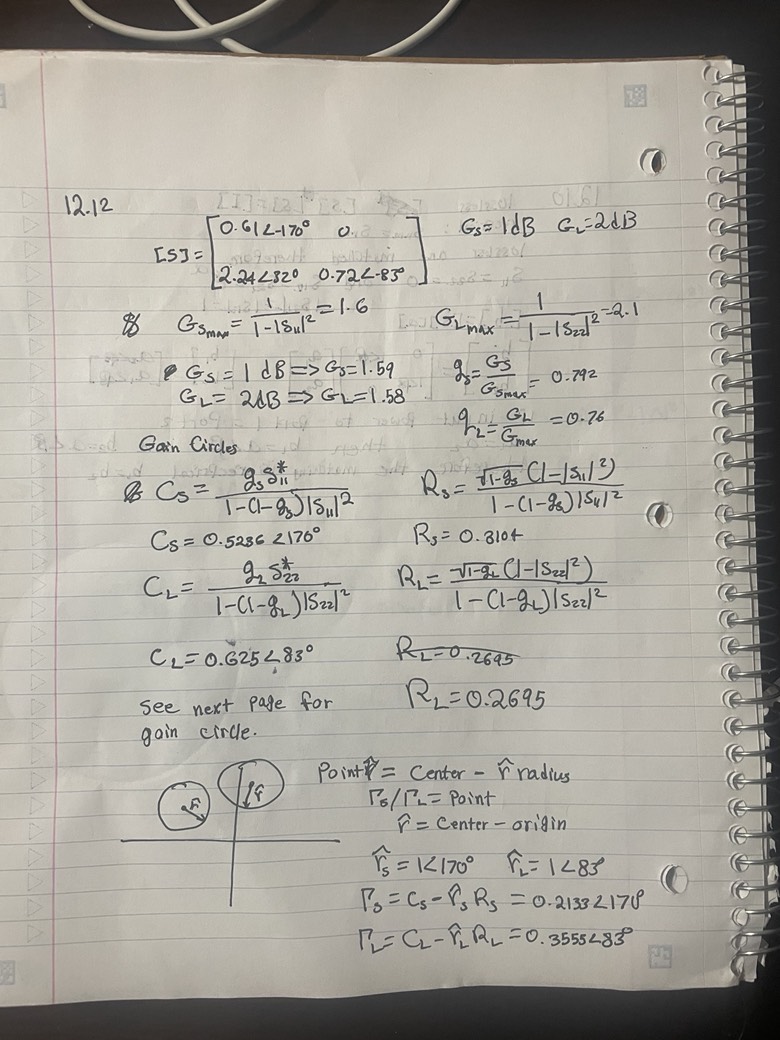 12.12
[S] = [0.61∠-170° 0.
2.24∠32° 0.72∠-83°] Gs = 1dB GL = 2dB
Gsmax = 1/(1-|S11|²) = 1.6 GLmax = 1/(1-|S22|²) = 2.1
Gs = 1 dB => Gs = 1.59 gs = Gs/Gsmax = 0.792
GL = 2dB => GL = 1.58 gL = GL/Gmax = 0.76
Gain Circles
Cs = gs S11*/(1-(1-gs)|S11|²) Rs = √(1-gs) (1-|S11|²)/(1-(1-gs)|S11|²)
Cs = 0.5236∠170° Rs = 0.3104
CL = gL S22*/(1-(1-gL)|S22|²) RL = √(1-gL) (1-|S22|²)/(1-(1-gL)|S22|²)
CL = 0.625∠83° RL = 0.2695
See next page for RL = 0.2695
gain circle.
Point = Center - r̂ radius
Γs/ΓL = Point
r̂ = Center - origin
r̂ r̂
r̂s = 1∠170° r̂L = 1∠83°
Γs = Cs - r̂s Rs = 0.2133∠170°
ΓL = CL - r̂L RL = 0.3555∠83°